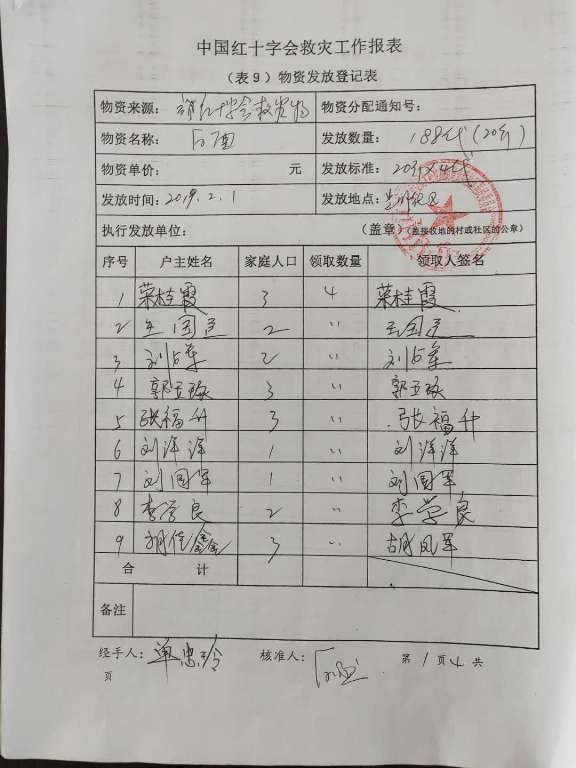 中国红十字会救灾工作报表
（表9）物资发放登记表
物资来源： 红十字会救灾物 物资分配通知号：
物资名称： 白面 发放数量： 188袋（20斤）
物资单价： 元 发放标准： 20斤×4袋
发放时间：2019.2.1 发放地点：
执行发放单位： （盖章）（盖接收地的村或社区的公章）
序号 户主姓名 家庭人口 领取数量 领取人签名
1 荣桂霞 3 4 荣桂霞
2 王国 2 〃 王国
3 刘占军 2 〃 刘占军
4 郭亚 3 〃 郭亚
5 张福升 3 〃 张福升
6 刘洋洋 1 〃 刘洋洋
7 刘国军 1 〃 刘国军
8 李学良 2 〃 李学良
9 胡佳鑫 3 〃 胡凤军
合 计
备注
经手人：单忠玲 核准人： 第1页4共
页